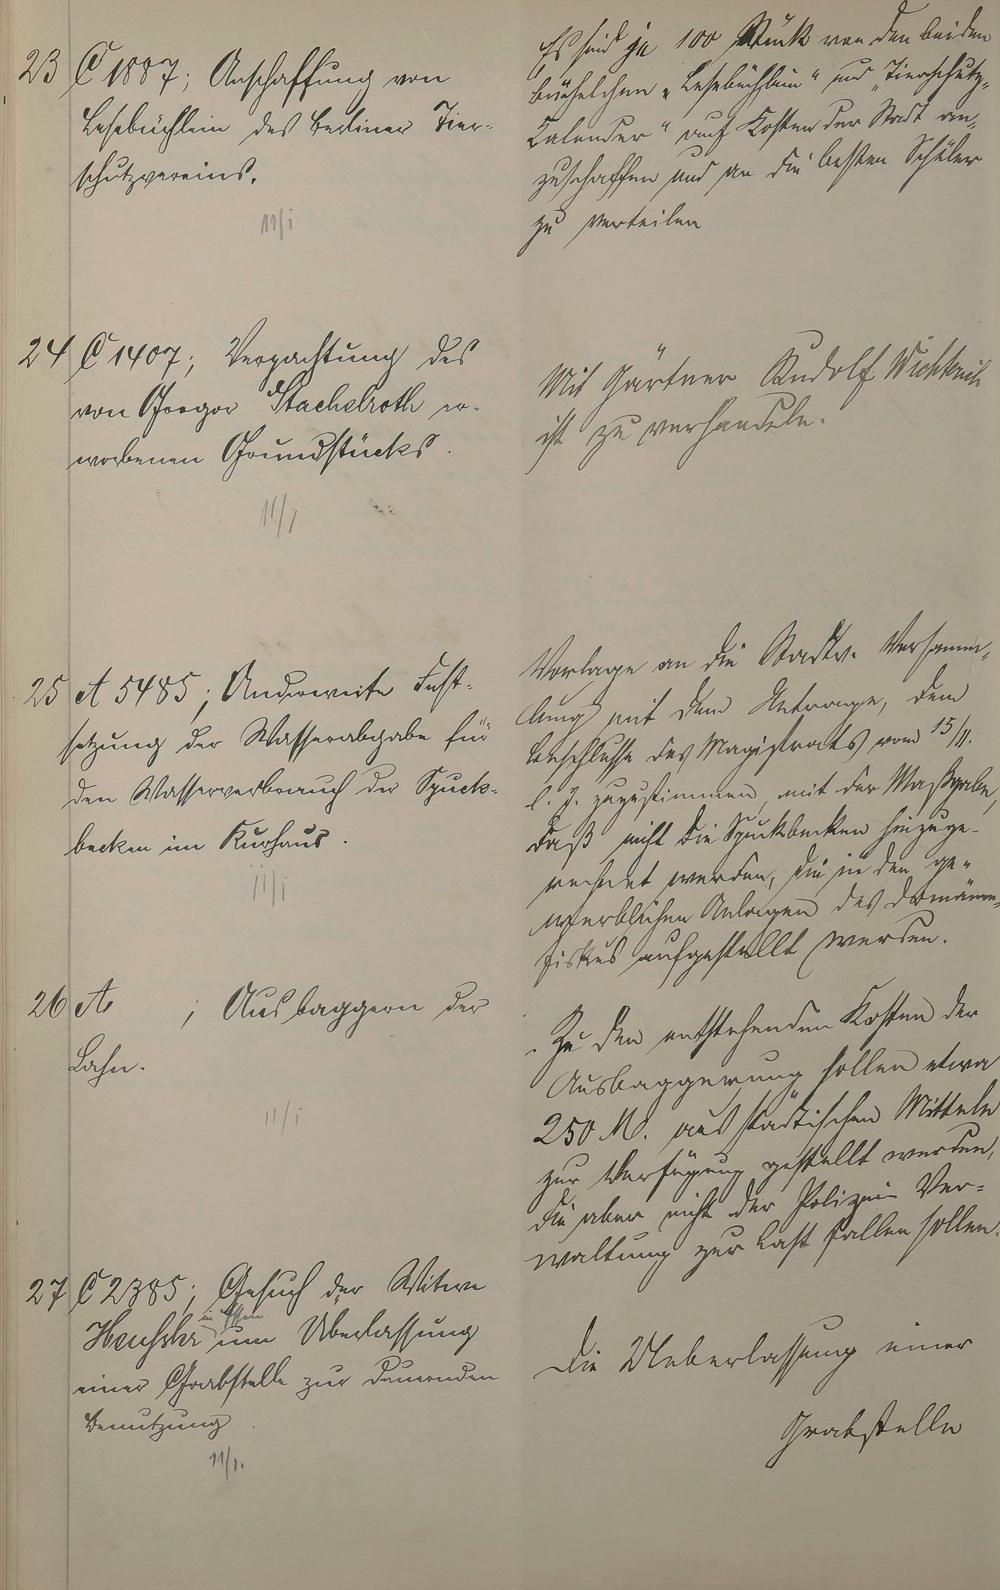 23 C 1887; Anschaffung von
Lesebüchlein des Berliner Tier-
schutzvereins.
11/I
Es sind je 100 Stück von den beiden
büchelchen „Lesebüchlein“ und „Tierschutz-
Calender“ auf Kosten der Stadt an-
zuschaffen und an die besten Schüler
zu verteilen
24 C 1407; Verpachtung des
von Gregor Stachelroth er-
worbenen Grundstücks.
11/I
Mit Gärtner Rudolf
ist zu verhandeln.
25 A 5485; Anderweite Fest-
setzung der Wasserabgabe für
den Wasserverbrauch der Spuck-
becken im Kurhaus.
11/I
Vorlage an die Stadtv. Versamm-
lung mit dem Antrage, dem
Beschlusse des Magistrats vom 15/11.
l. J. zuzustimmen, mit der Maßgabe,
daß nicht die Spuckbecken hinzuge-
rechnet werden, die in den ge-
werblichen Anlagen des Domänen-
fiskus aufgestellt werden.
26 A ; Ausbaggern der
Lahn.
11/I
Zu den entstehenden Kosten der
Ausbaggerung sollen etwa
250 M. aus städtischen Mitteln
zur Verfügung gestellt werden,
die aber nicht der Polizei Ver-
waltung zur Last fallen sollen.
27 C 2385; Gesuch der Witwe
in
um Überlassung
einer Grabstelle zur dauernden
Benutzung.
11/I.
Die Ueberlassung einer
Grabstelle